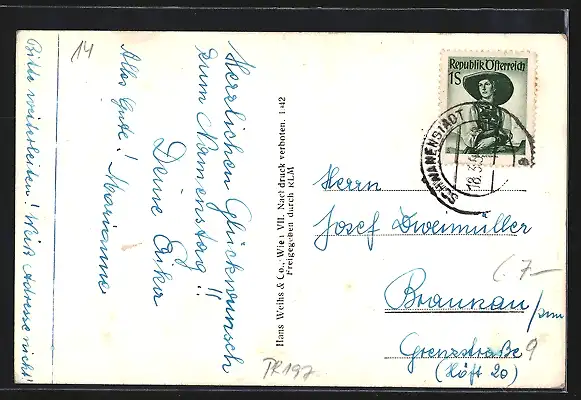 Bitte weiterleiten! Weiß Adresse nicht!
14
Alles Gute! Marianne
Herzlichen Glückwunsch
zum Namenstag!!
Deine Erika
Hans Weihs & Co., Wien VII. Nachdruck verboten. 1.42
Freigegeben durch RLM
Republik Österreich
1S
SCHWANENSTADT
18.3.5
Herrn
Josef Zweimüller
C. 7-
Braunau/Inn
Grenzstraße 9
(Höft 20)
PR197